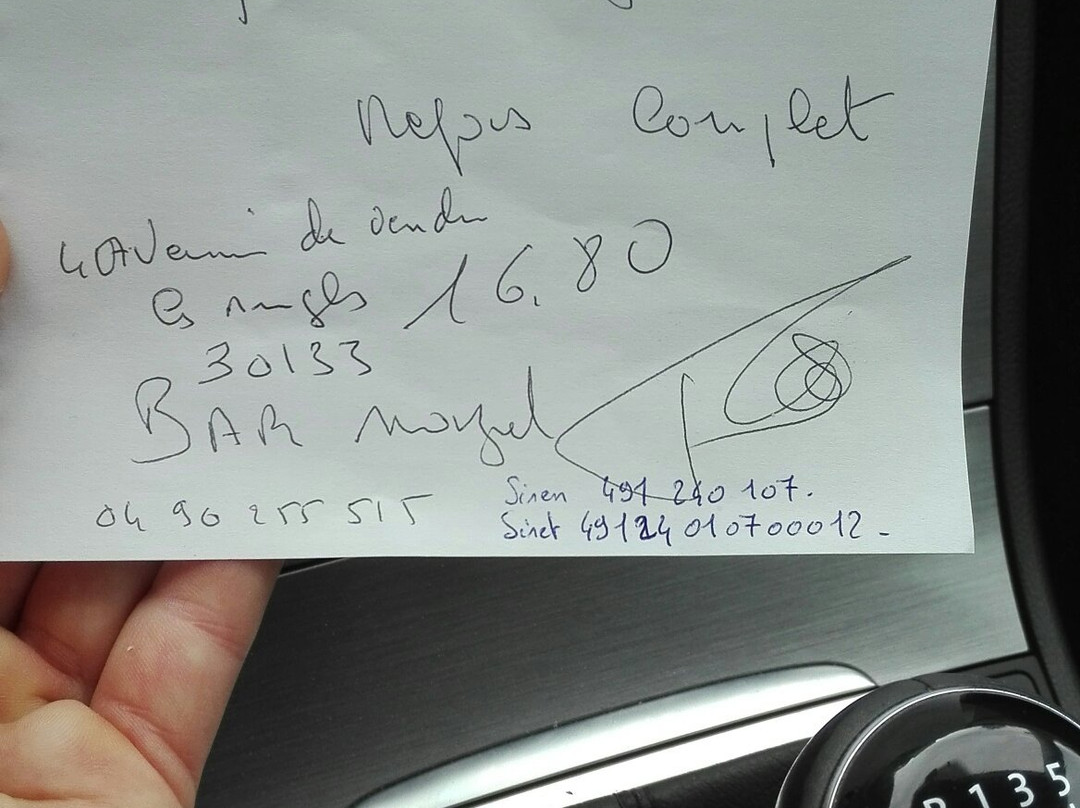 Repas Complet
4 Avenue de verdun
les angles 16.80
30133
BAR
04 90 255 515
Siren 491 240 107.
Siret 49124 010700012 -
R 1 3 5